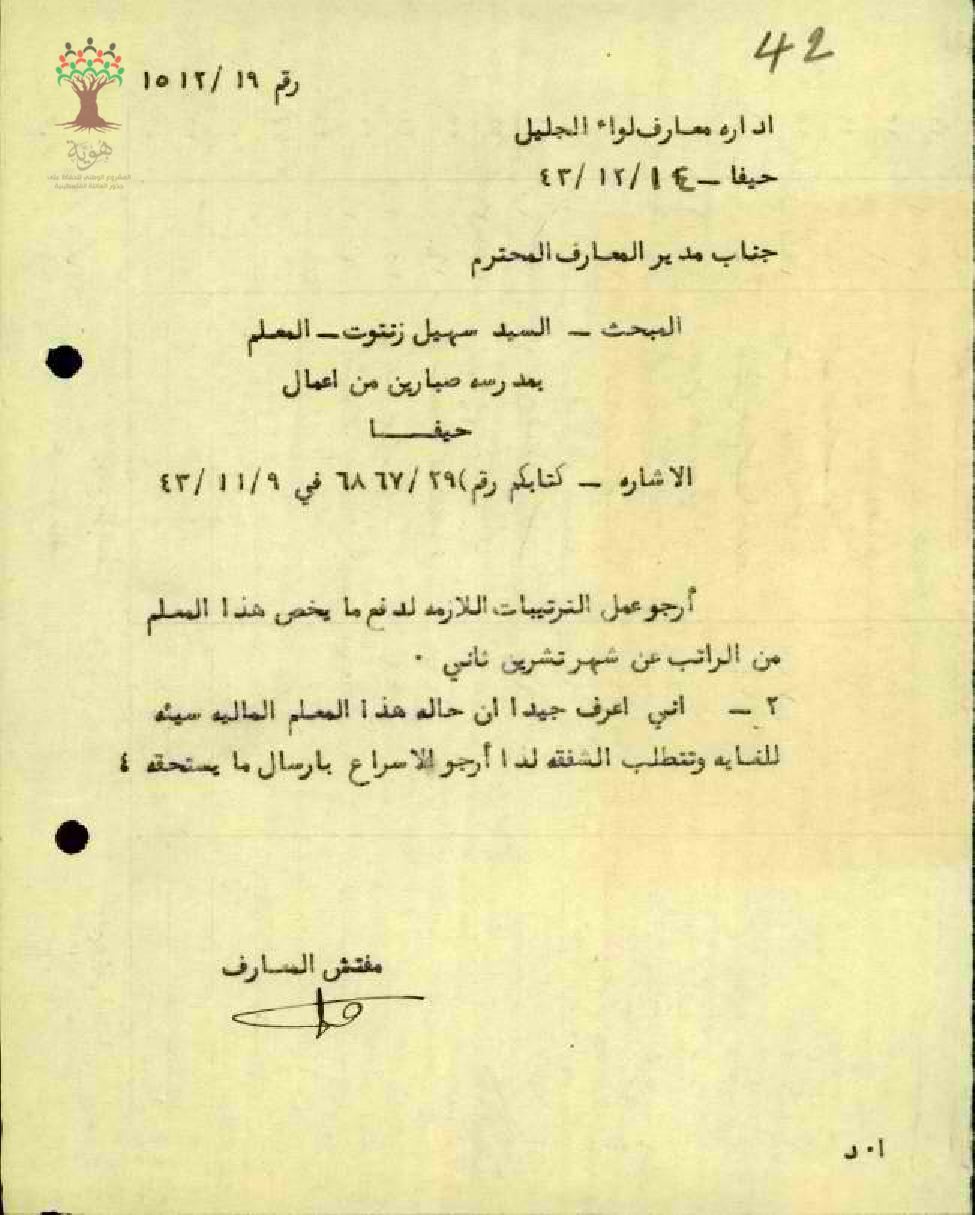 42
رقم ١٩ /١٢ ١٥
هوية
المشروع الوطني للحفاظ على
جذور العائلة الفلسطينية
اداره معارف لواء الجليل
حيفا ــ ١٤/ ١٢/ ٤٣
جناب مدير المعارف المحترم
المبحث ــ السيد سهيل زنتوت ــ المعلم
بمدرسه صبارين من اعمال
حيفــــا
الاشاره ــ كتابكم رقم)٢٩/ ٦٧ ٦٨ في ٩/ ١١/ ٤٣
أرجو عمل الترتيبات اللازمه لدفع ما يخص هذا المعلم
من الراتب عن شهر تشرين ثاني ٠
٢ ــ اني اعرف جيدا ان حاله هذا المعلم الماليه سيئه
للغايه وتتطلب الشفقه لذا أرجو الاسراع بارسال ما يستحقه ٤
مفتش المعارف
ا٠ د